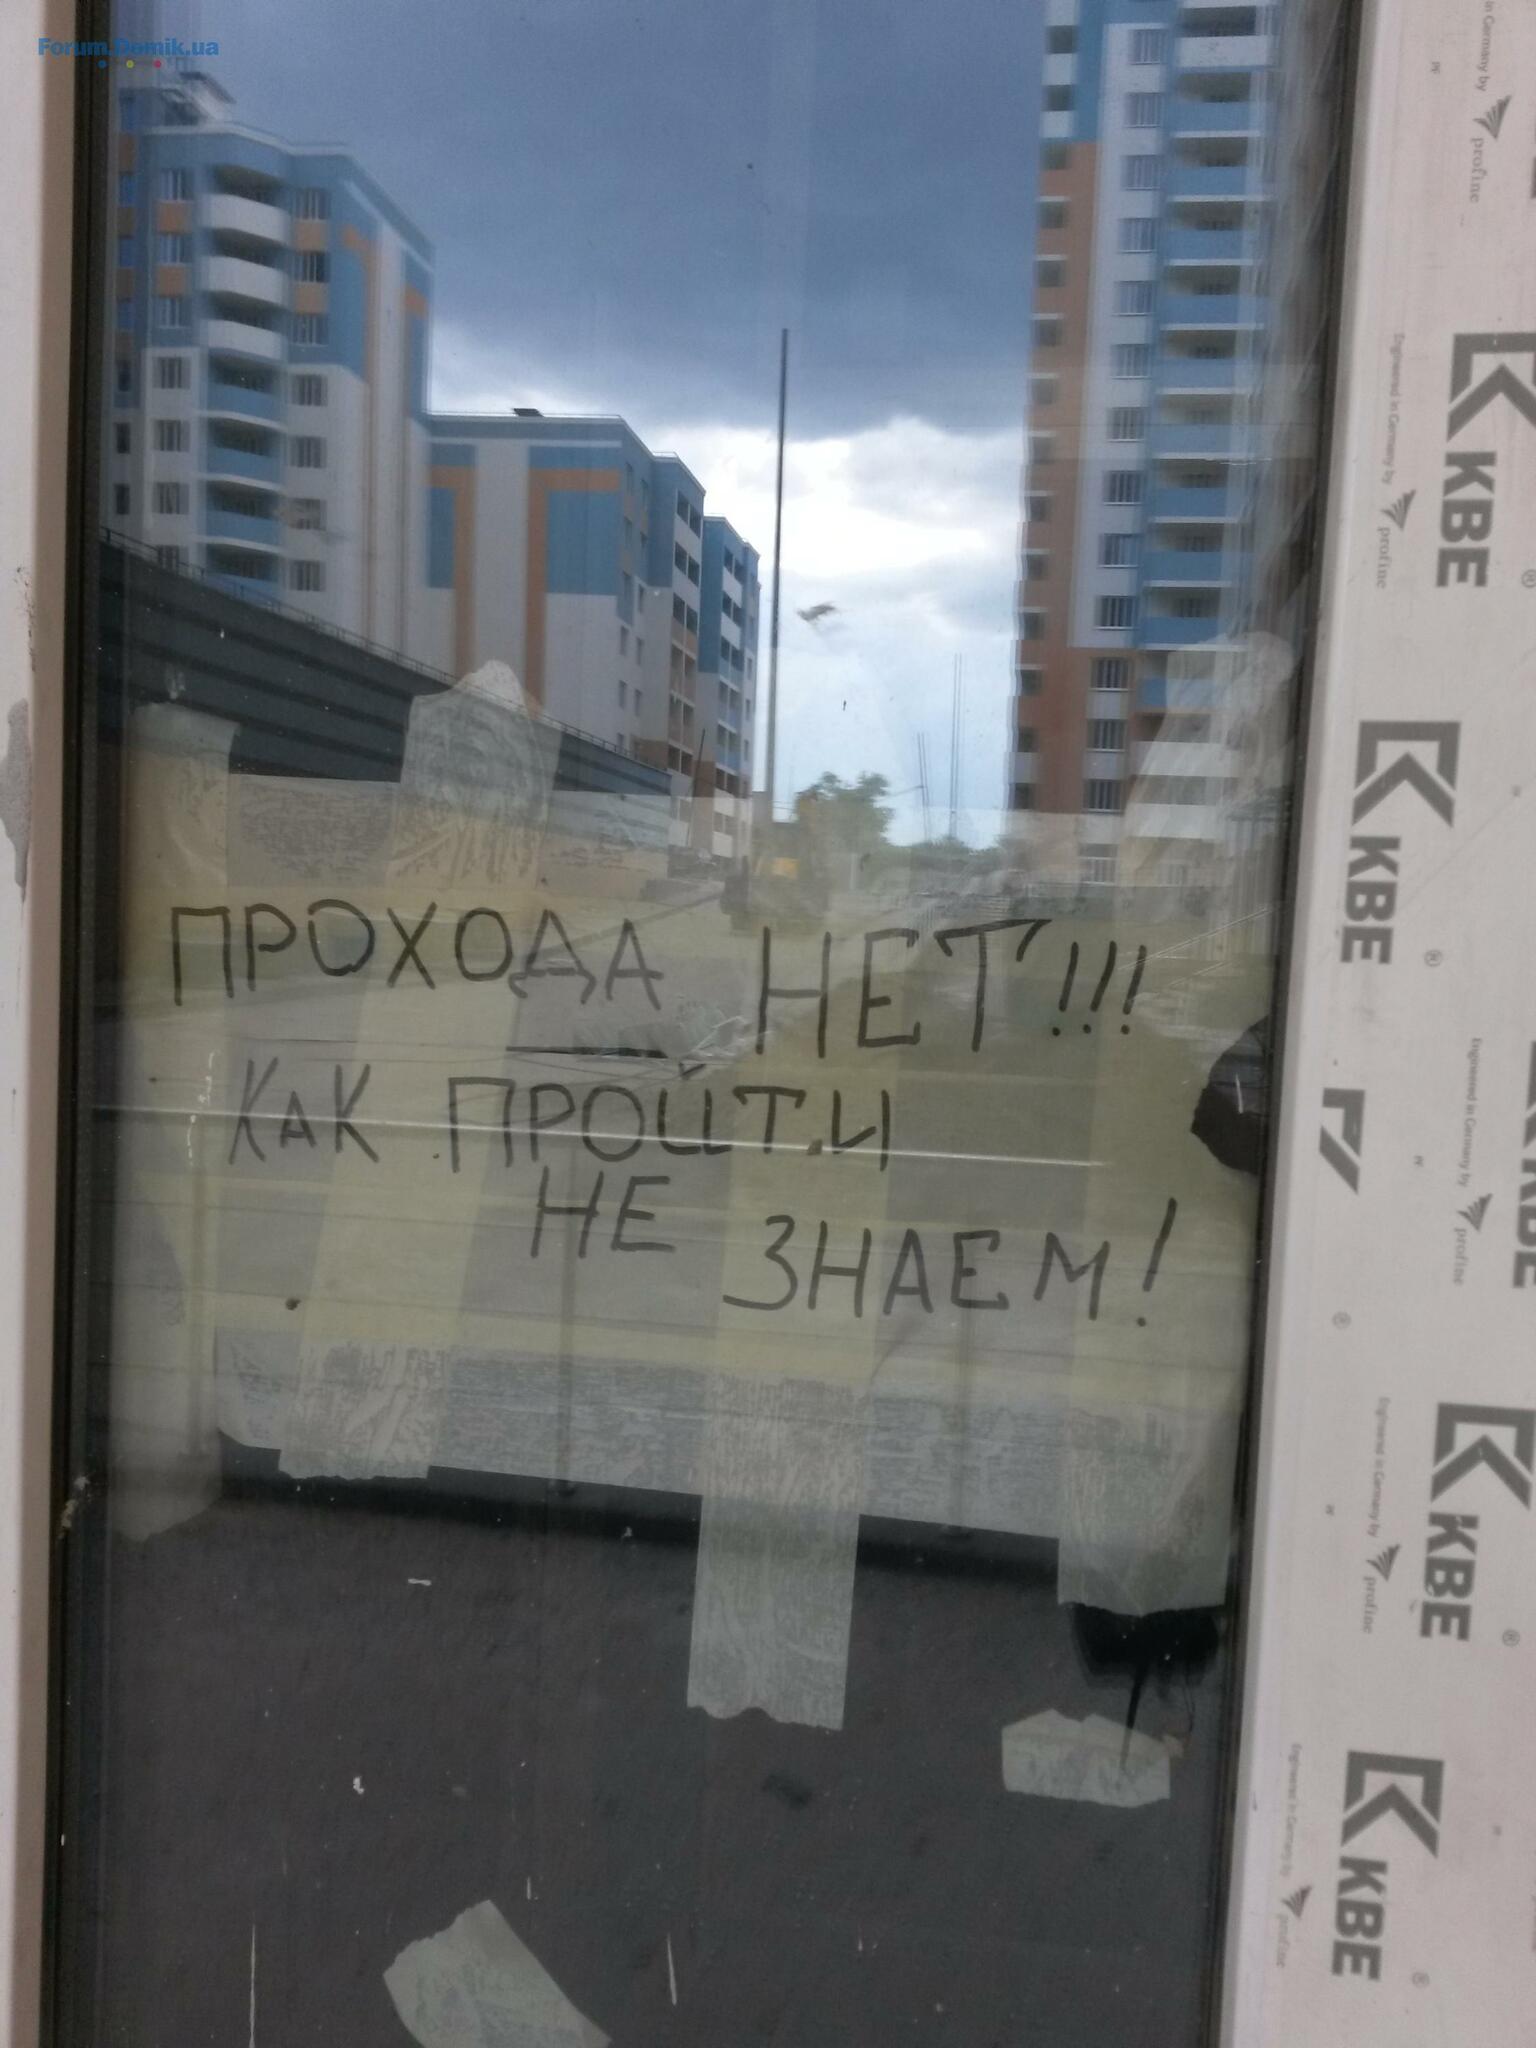 Forum.Domik.ua
ПРОХОДА НЕТ!!!
КАК ПРОЙТИ
НЕ ЗНАЕМ!
Engineered in Germany by profine
KBE
Engineered in Germany by profine
KBE
Engineered in Germany by profine
KBE
Engineered in Germany by profine
KBE
Engineered in Germany by profine
KBE